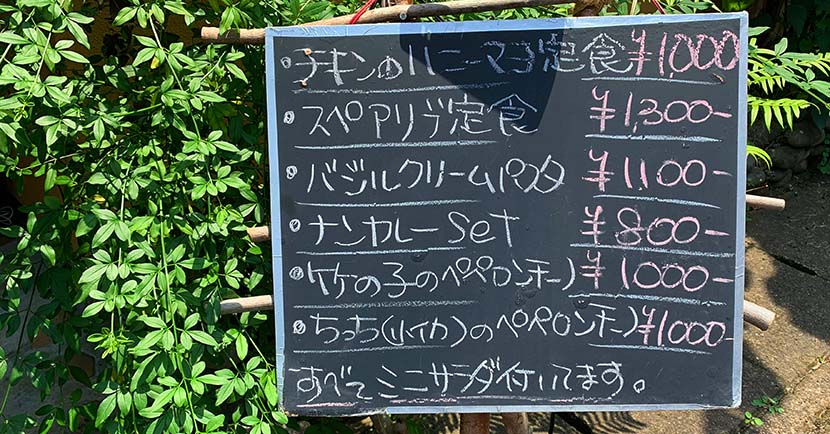 ・チキンのハニーマヨ定食 ¥1000
・スペアリブ定食 ¥1,300-
・バジルクリームパスタ ¥1,100-
・ナンカレーSet ¥800-
・タケの子のペペロンチーノ ¥1000-
・ちっち(小イカ)のペペロンチーノ ¥1000-
すべてミニサラダ付いてます。